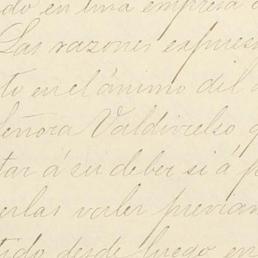 do en una empresa
Las razones expues
to en el ánimo del
señora Valdivielso
tar á su deber si á
erlas valer previa
tido desde luego en